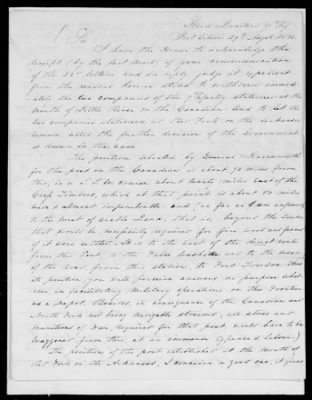 Head Quarters 7th Inf
Fort Gibson 27th Sept. 1834
Sir
I have the Honor to acknowledge the
receipt (by the last mail) of your communication
of the and in reply judge it expedient
from the reasons herein stated to withdraw immedi-
ately the two companies of the 7th Infantry stationed at the
mouth of Little River on the Canadian. And to let the
two companies stationed at the Fork on the Arkansas
remain until the further decision of the Government
is known in the case.
The position selected by General Leavenworth
for the post on the Canadian is about 90 miles from
this, in a S.W. course about miles east of the
Cross Timbers, which at that point is about 50 miles
wide & almost impenetrable and so far as I am informed
to the west of arable Land; that is, beyond the Timber
that would be necessarily required for fire wood and fences
if it were settled. It is to the east of the direct route
from this Post, to the Pawnee and to the west
of the road from this station, to Fort Towson. Thus
its position, you will perceive answers no purpose what
ever, in facilitating Military operations on this Frontier
as a depot. Besides, in consequence of the Canadian and
North Fork not being navigable streams, all stores and
munitions of War, required for that post would have to be
waggoned from this, at an immense expense & labour.
The position of the post established at the mouth of
Fork on the Arkansas, I conceive a good one; it gives